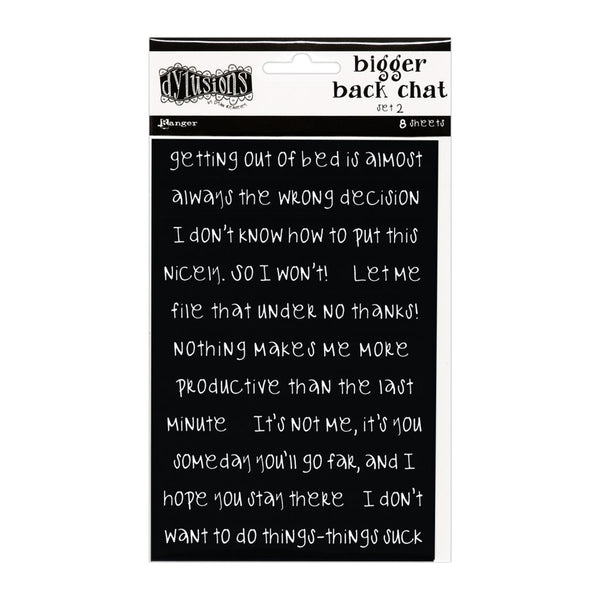 dylusions
bigger
back chat
set 2
Ranger
8 sheets
getting out of bed is almost
always the wrong decision
I don't know how to put this
nicely. So I won't! Let me
file that under no thanks!
Nothing makes me more
productive than the last
minute It's not me, it's you
someday you'll go far, and I
hope you stay there I don't
want to do things-things suck